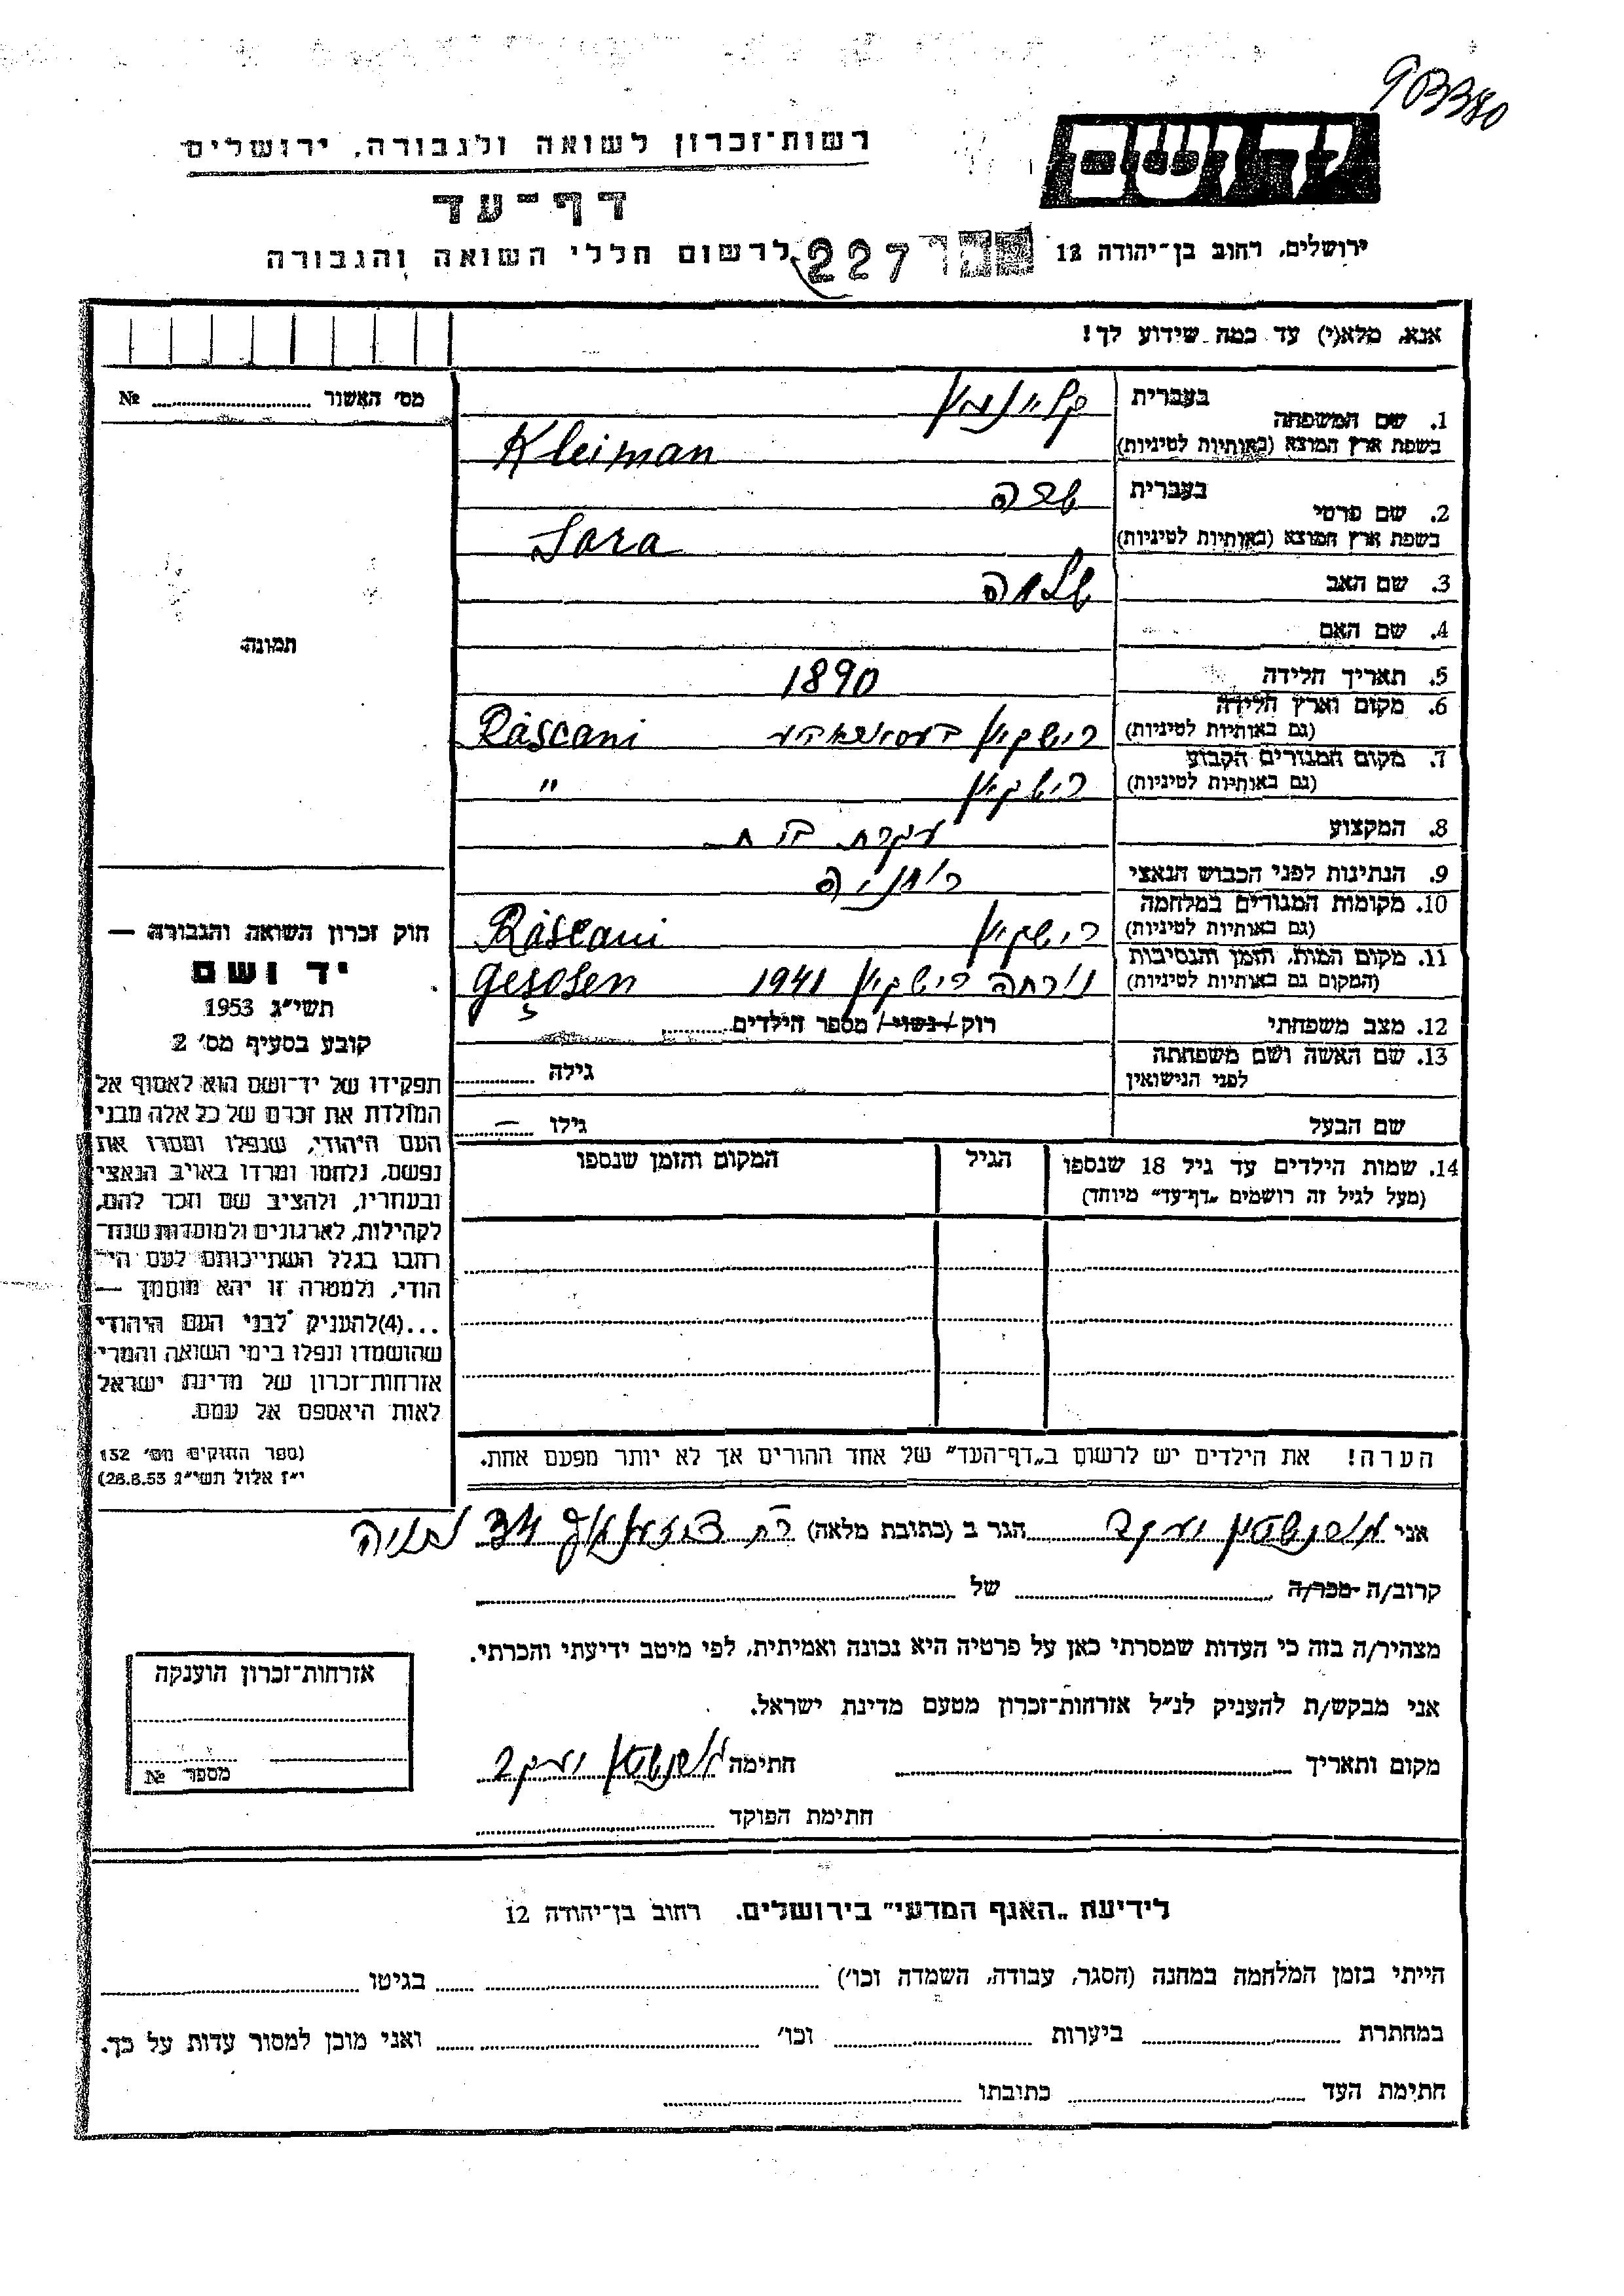 903380
יד ושם
רשות־זכרון לשואה ולגבורה, ירושלים
דף־עד
ירושלים, רחוב בן־יהודה 12
227 לרשום חללי השואה והגבורה
אנא, מלא(י) עד כמה שידוע לך!
מס׳ האשור № 
1. שם המשפחה בעברית קליימן
בשפת ארץ המוצא (באותיות לטיניות) Kleiman
2. שם פרטי בעברית שרה
בשפת ארץ המוצא (באותיות לטיניות) Sara
3. שם האב שלמה
4. שם האם
תמונה
5. תאריך הלידה 1890
6. מקום וארץ הלידה
(גם באותיות לטיניות) רישקאן Râscani
7. מקום המגורים הקבוע
(גם באותיות לטיניות) רישקאן "
8. המקצוע עקרת בית
9. הנתינות לפני הכבוש הנאצי רומניה
10. מקומות המגורים במלחמה
(גם באותיות לטיניות) רישקאן Râscani
11. מקום המות, הזמן והנסיבות
(המקום גם באותיות לטיניות) נורתה רישקאן 1941
12. מצב משפחתי רוק / נשוי / מספר הילדים
13. שם האשה ושם משפחתה
לפני הנישואין גילה
שם הבעל גילו —
14. שמות הילדים עד גיל 18 שנספו הגיל המקום והזמן שנספו
(מעל לגיל זה רושמים „דף־עד״ מיוחד)
חוק זכרון השואה והגבורה —
יד ושם
תשי״ג 1953
קובע בסעיף מס׳ 2
תפקידו של יד־ושם הוא לאסוף אל
המולדת את זכרם של כל אלה מבני
העם היהודי, שנפלו ומסרו את
נפשם, נלחמו ומרדו באויב הנאצי
ובעוזריו, ולהציב שם וזכר להם,
לקהילות, לארגונים ולמוסדות שנח־
רבו בגלל השתייכותם לעם הי־
הודי, ולמטרה זו יהא מוסמך —
...(4)להעניק לבני העם היהודי
שהושמדו ונפלו בימי השואה והמרי
אזרחות־זכרון של מדינת ישראל
לאות היאספם אל עמם.
(ספר החוקים מס׳ 132
י״ז אלול תשי״ג 28.8.53)
הערה! את הילדים יש לרשום ב„דף־העד״ של אחד ההורים אך לא יותר מפעם אחת.
אני יעקב הגר ב (כתובת מלאה) רח 34
קרוב/ה מכר/ה של
מצהיר/ה בזה כי העדות שמסרתי כאן על פרטיה היא נכונה ואמיתית, לפי מיטב ידיעתי והכרתי.
אני מבקש/ת להעניק לנ״ל אזרחות־זכרון מטעם מדינת ישראל.
מקום ותאריך חתימה יעקב
חתימת הפוקד
אזרחות־זכרון הוענקה
מספר №
לידיעת „האגף המדעי״ בירושלים. רחוב בן־יהודה 12
הייתי בזמן המלחמה במחנה (הסגר, עבודה, השמדה וכו׳) בגיטו
במחתרת ביערות וכו׳ ואני מוכן למסור עדות על כך.
חתימת העד כתובתו